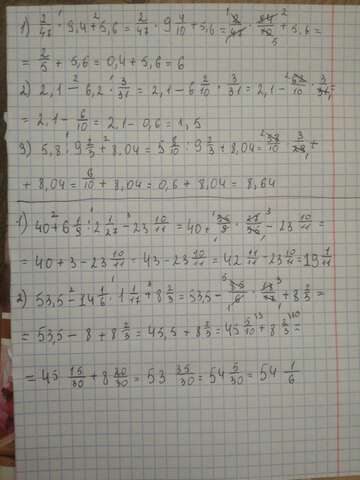 1) 2/47 · 9,4 + 5,6 = 2/47 · 9 4/10 + 5,6 = 2/47 · 94/10 + 5,6 =
= 2/5 + 5,6 = 0,4 + 5,6 = 6
2) 2,1 - 6,2 · 3/31 = 2,1 - 6 2/10 · 3/31 = 2,1 - 62/10 · 3/31 =
= 2,1 - 6/10 = 2,1 - 0,6 = 1,5
3) 5,8 : 9 2/3 + 8,04 = 5 8/10 : 9 2/3 + 8,04 = 58/10 · 3/29 +
+ 8,04 = 6/10 + 8,04 = 0,6 + 8,04 = 8,64
1) 40 + 6 1/9 : 2 1/27 - 23 10/11 = 40 + 55/9 · 27/55 - 23 10/11 =
= 40 + 3 - 23 10/11 = 43 - 23 10/11 = 42 11/11 - 23 10/11 = 19 1/11
2) 53,5 - 14 1/6 : 1 1/17 + 8 2/3 = 53,5 - 85/6 · + 8 2/3 =
= 53,5 - 8 + 8 2/3 = 45,5 + 8 2/3 = 45 5/10 + 8 2/3 =
= 45 15/30 + 8 20/30 = 53 35/30 = 54 5/30 = 54 1/6